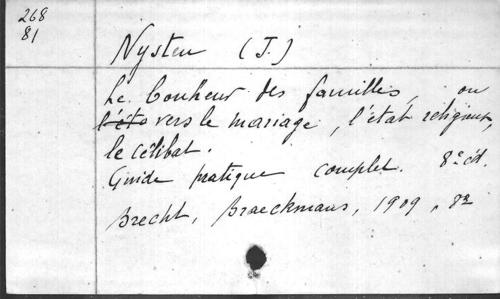 268
81
Nysten (J.)
Le bonheur des familles, ou
l'éto vers le mariage, l'état religieux,
le célibat.
Guide pratique complet. 8e éd.
Brecht, Braeckmans, 1909, 8°